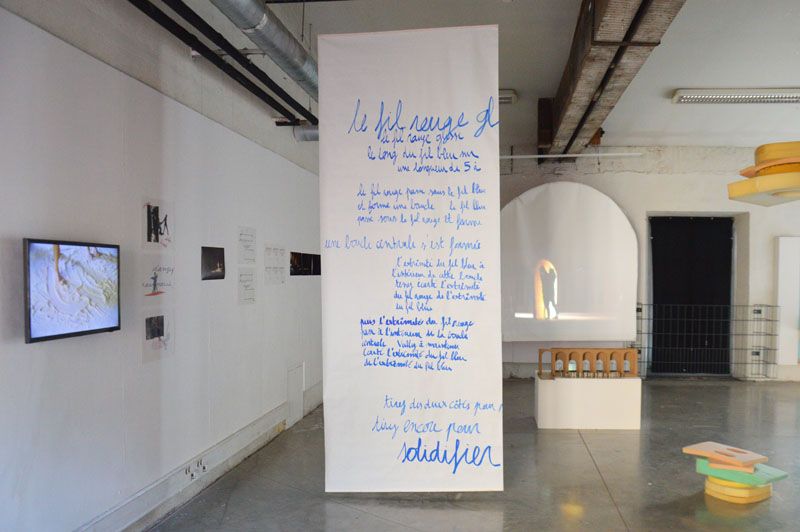 le fil rouge gl
le fil rouge glisse
le long du fil bleu sur
une longueur de 5 à
le fil rouge passe sous le fil bleu
et forme une boucle le fil bleu
passe sous le fil rouge et forme
une boucle centrale s'est formée
l'extrémité du fil bleu à
l'extérieur de cette boucle
tenez écarté l'extrémité
du fil rouge de l'extrémité
du fil bleu
puis l'extrémité du fil rouge
par à l'extérieur de la boucle
centrale Veillez à maintenir
écarté l'extrémité du fil bleu
de l'extrémité du fil bleu
tirez des deux côtés pour
tirez encore pour
solidifier